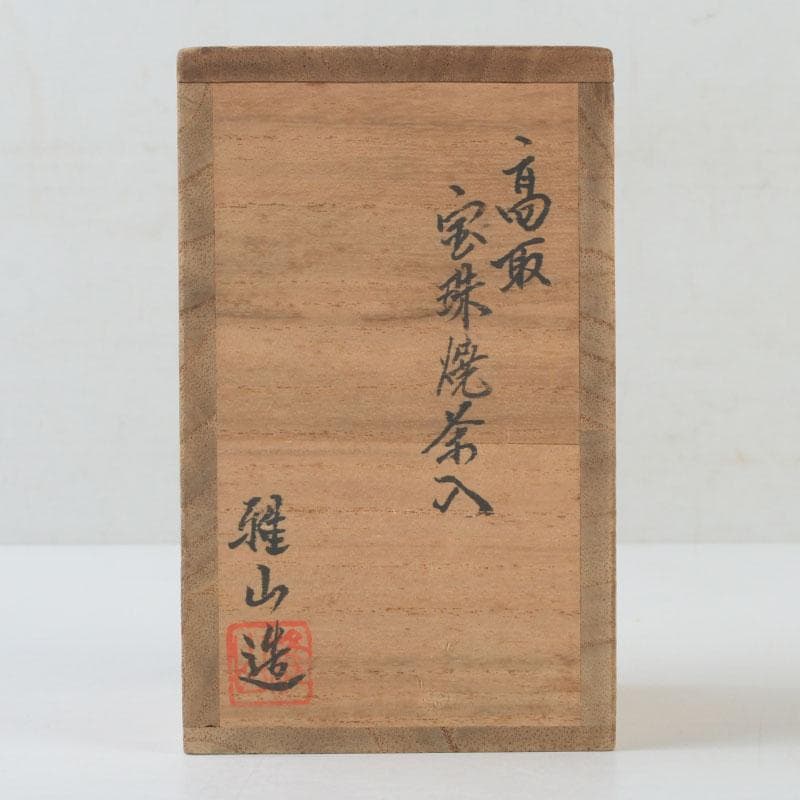 高取
宝珠焼茶入
雅山造